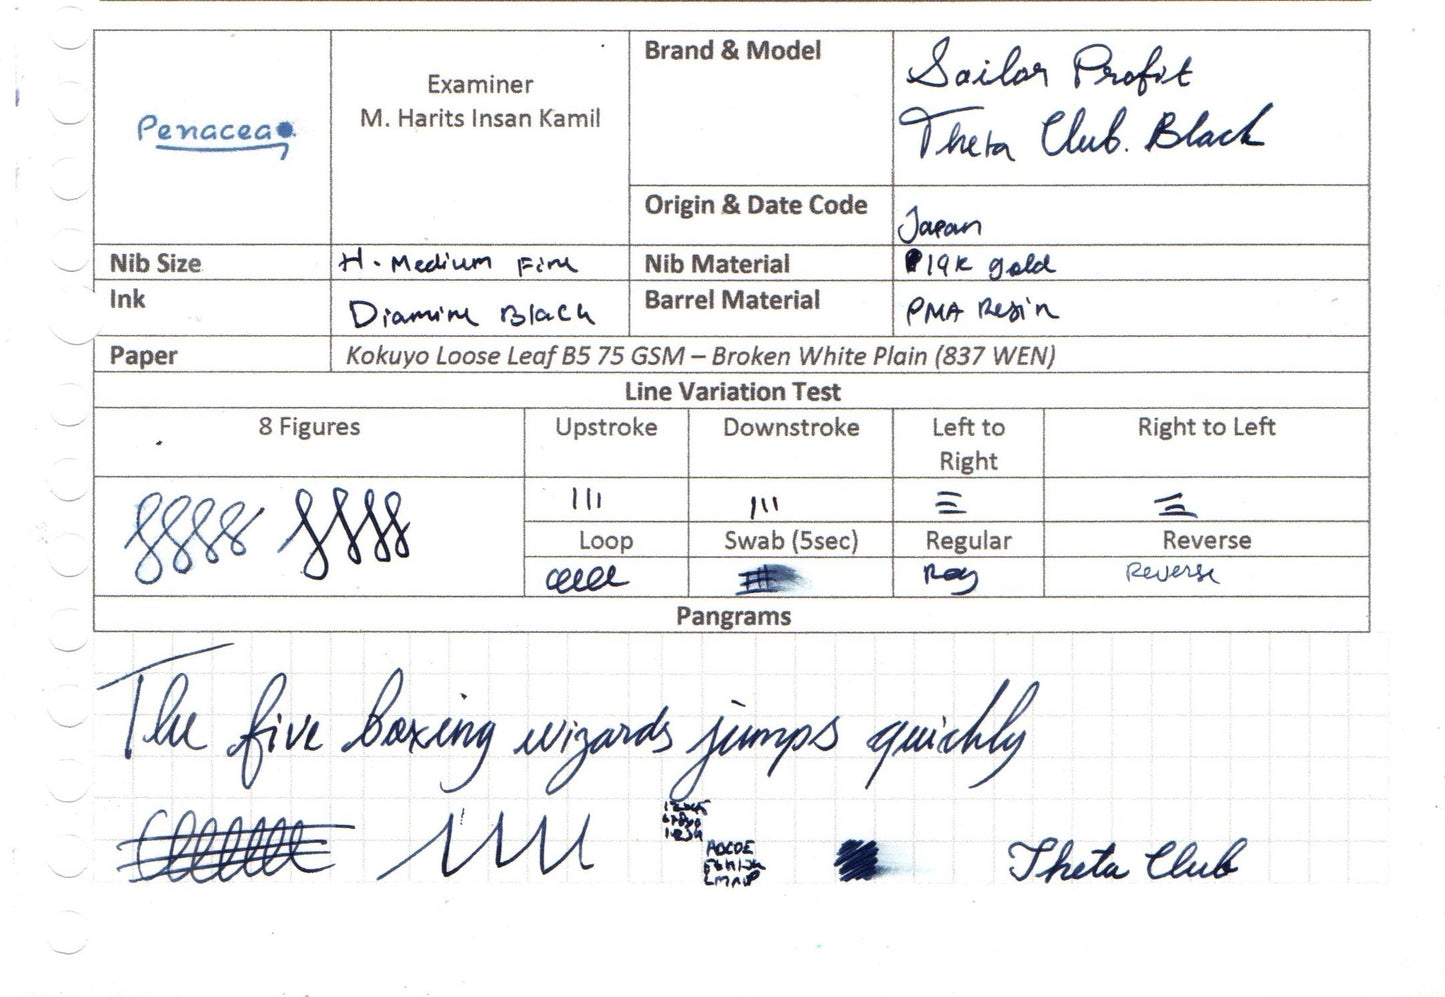 Penacea
Examiner
M. Harits Insan Kamil
Brand & Model
Sailor Profit
Theta Club. Black
Origin & Date Code
Japan
Nib Size
H. Medium Fine
Nib Material
19K gold
Ink
Diamine Black
Barrel Material
PMA Resin
Paper
Kokuyo Loose Leaf B5 75 GSM – Broken White Plain (837 WEN)
Line Variation Test
8 Figures
Upstroke
Downstroke
Left to
Right
Right to Left
Loop
Swab (5sec)
Regular
Reverse
Reg
Reverse
Pangrams
The five boxing wizards jumps quickly
ABCDE
Theta Club